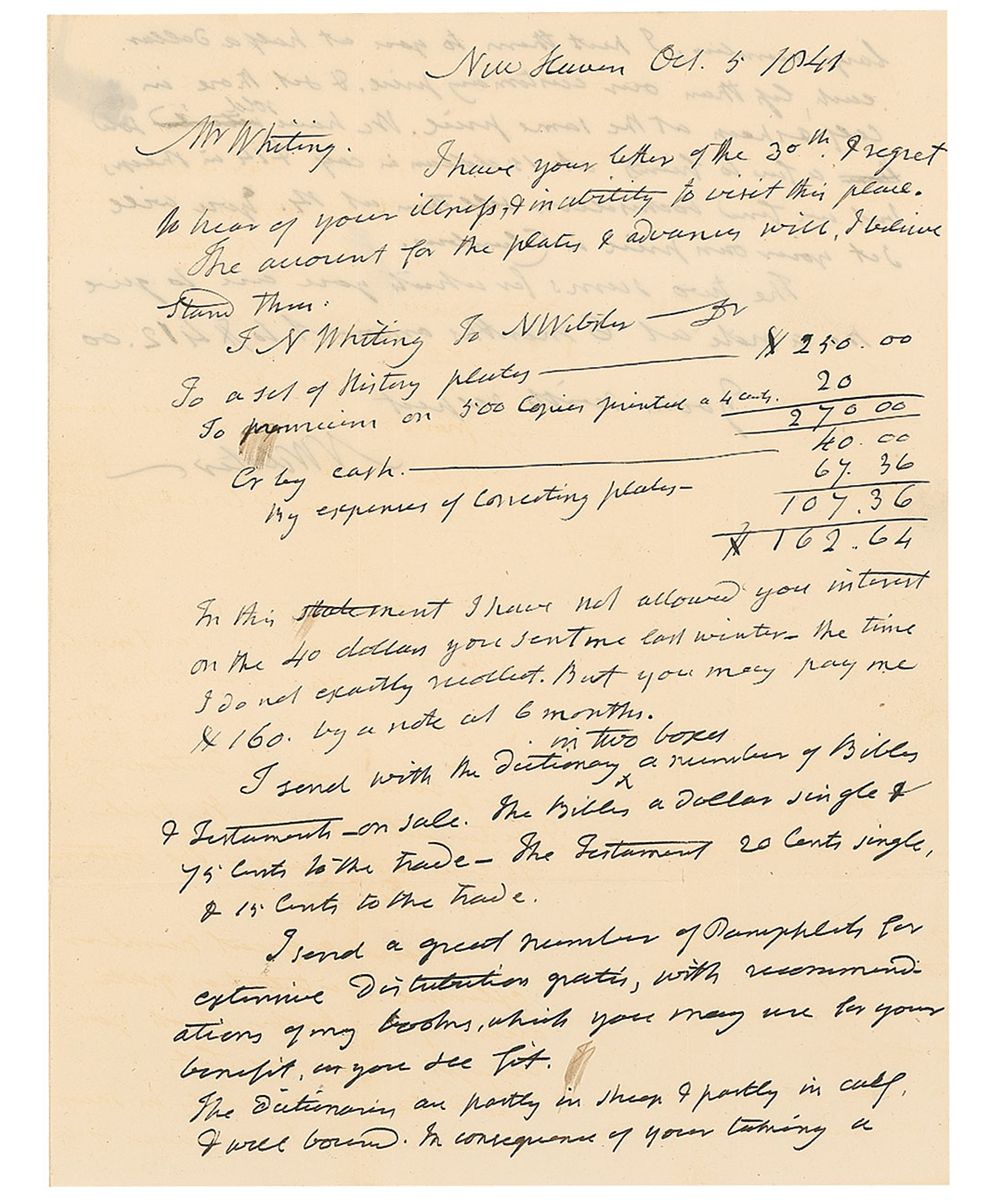 New Haven Oct. 5 1841
Mr Whiting.
I have your letter of the 30th. I regret
to hear of your illness, & inability to visit this place.
The account for the plates & advances will, I believe
stand thus:
I N Whiting To N Webster — Dr
To a set of History plates — $ 250.00
To premium on 500 Copies printed a 4 cents. 20
270 00
Cr by cash. — 40.00
By expenses of correcting plates — 67.36
107.36
$ 162.64
In this statement I have not allowed you interest
on the 40 dollars you sent me last winter — the time
I do not exactly recollect. But you may pay me
$ 160. by a note at 6 months.
in two boxes
I send with the Dictionary ^ a number of Bibles
& Testaments — on sale. The Bibles a Dollar single &
75 Cents to the trade — The Testament 20 Cents single,
& 15 Cents to the trade.
I send a great number of Pamphlets for
extensive Distribution gratis, with recommend-
ations of my books, which you may use for your
benefit, as you see fit.
The Dictionaries are partly in sheep & partly in calf,
& well bound. In consequence of your taking a